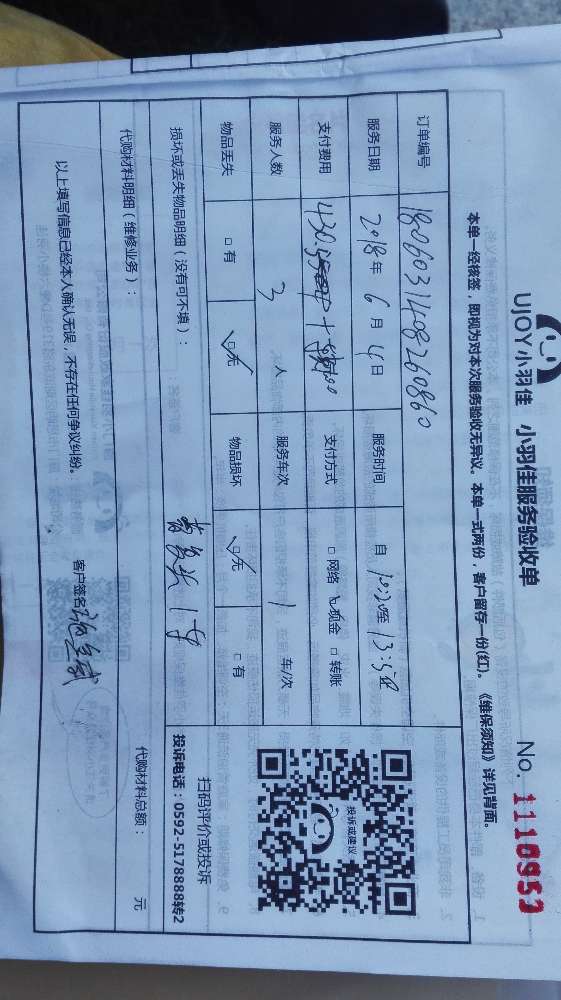 UJOY小羽佳 小羽佳服务验收单 No. 1110953
本单一经核签，即视为对本次服务验收无异议。本单一式两份，客户留存一份(红)。《维保须知》详见背面。
订单编号 180603140826 0860
服务日期 2018年 6月 4日 服务时间 自 10:20至 13:50
支付费用 430. 支付方式 □网络 ☑现金 □转账
服务人数 3 人 服务车次 1 车/次
物品丢失 □有 ☑无 物品损坏 ☑无 □有
投诉或建议
扫码评价或投诉
投诉电话：0592-5178888转2
损坏或丢失物品明细（没有可不填）：
代购材料明细（维修业务）： 代购材料总额： 元
以上填写信息已经本人确认无误，不存在任何争议纠纷。 客户签名